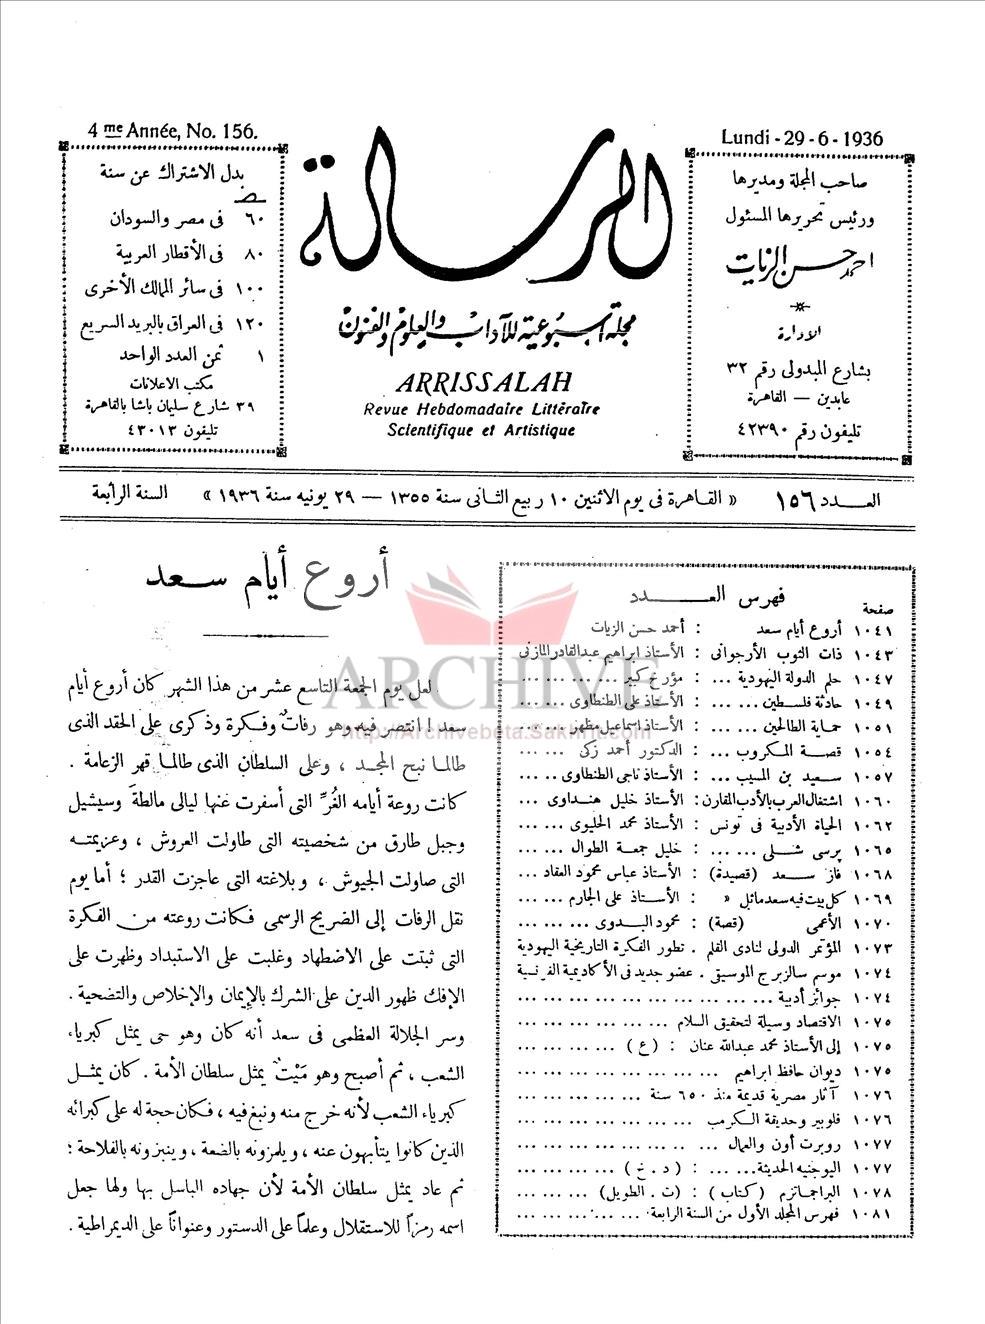 Lundi - 29 - 6 - 1936
صاحب المجلة ومديرها
ورئيس تحريرها المسئول
احمد حسن الزيات
الادارة
بشارع المبدولى رقم ٣٢
عابدين — القاهرة
تليفون رقم ٤٢٣٩٠
الرسالة
مجلة أسبوعية للآداب والعلوم والفنون
ARRISSALAH
Revue Hebdomadaire Littéraire
Scientifique et Artistique
4 me Année, No. 156.
بدل الاشتراك عن سنة
٦٠ فى مصر والسودان
٨٠ فى الأقطار العربية
١٠٠ فى سائر الممالك الأخرى
١٢٠ فى العراق بالبريد السريع
١ ثمن العدد الواحد
مكتب الاعلانات
٣٩ شارع سليمان باشا بالقاهرة
تليفون ٤٣٠١٣
العـــدد ١٥٦ « القاهرة فى يوم الاثنين ١٠ ربيع الثانى سنة ١٣٥٥ — ٢٩ يونيه سنة ١٩٣٦ » السنة الرابعة
فهرس العـــدد
صفحة
١٠٤١ أروع أيام سعد : أحمد حسن الزيات
١٠٤٣ ذات الثوب الأرجوانى : الأستاذ ابراهيم عبدالقادر المازنى
١٠٤٧ حلم الدولة اليهودية ... : مؤرخ كبير ... ... ... ...
١٠٤٩ حادثة فلسطين ... ... : الأستاذ على الطنطاوى ... ...
١٠٥١ حماية الطالحين ... : الأستاذ اسماعيل مظهر ... ...
١٠٥٤ قصة المكروب ... : الدكتور أحمد زكى ... ...
١٠٥٧ سعيد بن المسيب ... : الأستاذ ناجى الطنطاوى ... ...
١٠٦٠ اشتغال العرب بالأدب المقارن : الأستاذ خليل هنداوى ... ...
١٠٦٢ الحياة الأدبية فى تونس : الأستاذ محمد الحليوى ... ...
١٠٦٥ پرسى شلى ... ... : خليل جمعة الطوال ... ...
١٠٦٨ فاز سعد (قصيدة) : الأستاذ عباس محمود العقاد ...
١٠٦٩ كل بيت فيه سعد ماثل » : الأستاذ على الجارم ... ...
١٠٧٠ الأعمى (قصة) : محمود البدوى ... ... ...
١٠٧٣ المؤتمر الدولى لنادى القلم . تطور الفكرة التاريخية اليهودية
١٠٧٤ موسم سالزبرج الموسيقى . عضو جديد فى الأكاديمية الفرنسية
١٠٧٤ جوائز أدبية ... ... ... ... ... ... ... ...
١٠٧٥ الاقتصاد وسيلة لتحقيق السلام ... ... ... ... ...
١٠٧٥ إلى الأستاذ محمد عبدالله عنان : (ع) ... ... ... ...
١٠٧٥ ديوان حافظ ابراهيم ... ... ... ... ... ... ...
١٠٧٦ آثار مصرية قديمة منذ ٦٥٠ سنة ... ... ... ... ...
١٠٧٦ فلوبير وحديقة الكرمب ... ... ... ... ... ...
١٠٧٧ روبرت أون والعمال ... ... ... ... ... ... ...
١٠٧٧ اليوجنيه الحديثة ... ... : (د . خ) ... ... ... ...
١٠٧٨ البراجماتزم (كتاب) : (ت . الطويل) ... ... ...
١٠٨١ فهرس المجلد الأول من السنة الرابعة ... ... ... ... ...
أروع أيام سعد
لعل يوم الجمعة التاسع عشر من هذا الشهر كان أروع أيام
سعد ! انتصر فيه وهو رفات وفكرة وذكرى على الحقد الذى
طالما نبح المجد ، وعلى السلطان الذى طالما قهر الزعامة .
كانت روعة أيامه الغُرِّ التى أسفرت عنها ليالى مالطة وسيشيل
وجبل طارق من شخصيته التى طاولت العروش ، وعزيمته
التى صاولت الجيوش ، وبلاغته التى عاجزت القدر ؛ أما يوم
نقل الرفات إلى الضريح الرسمى فكانت روعته من الفكرة
التى ثبتت على الاضطهاد وغلبت على الاستبداد وظهرت على
الإفك ظهور الدين على الشرك بالإيمان والإخلاص والتضحية .
وسر الجلالة العظمى فى سعد أنه كان وهو حى يمثل كبرياء
الشعب ، ثم أصبح وهو مَيْت يمثل سلطان الأمة . كان يمثل
كبرياء الشعب لأنه خرج منه ونبغ فيه ، فكان حجة له على كبرائه
الذين كانوا يتأبهون عنه ، ويلمزونه بالضعة ، وينبزونه بالفلاحة ؛
ثم عاد يمثل سلطان الأمة لأن جهاده الباسل بها ولها جعل
اسمه رمزاً للاستقلال وعلماً على الدستور وعنواناً على الديمقراطية .
ARCHIVE
http://Archivebeta.Sakhrit.com